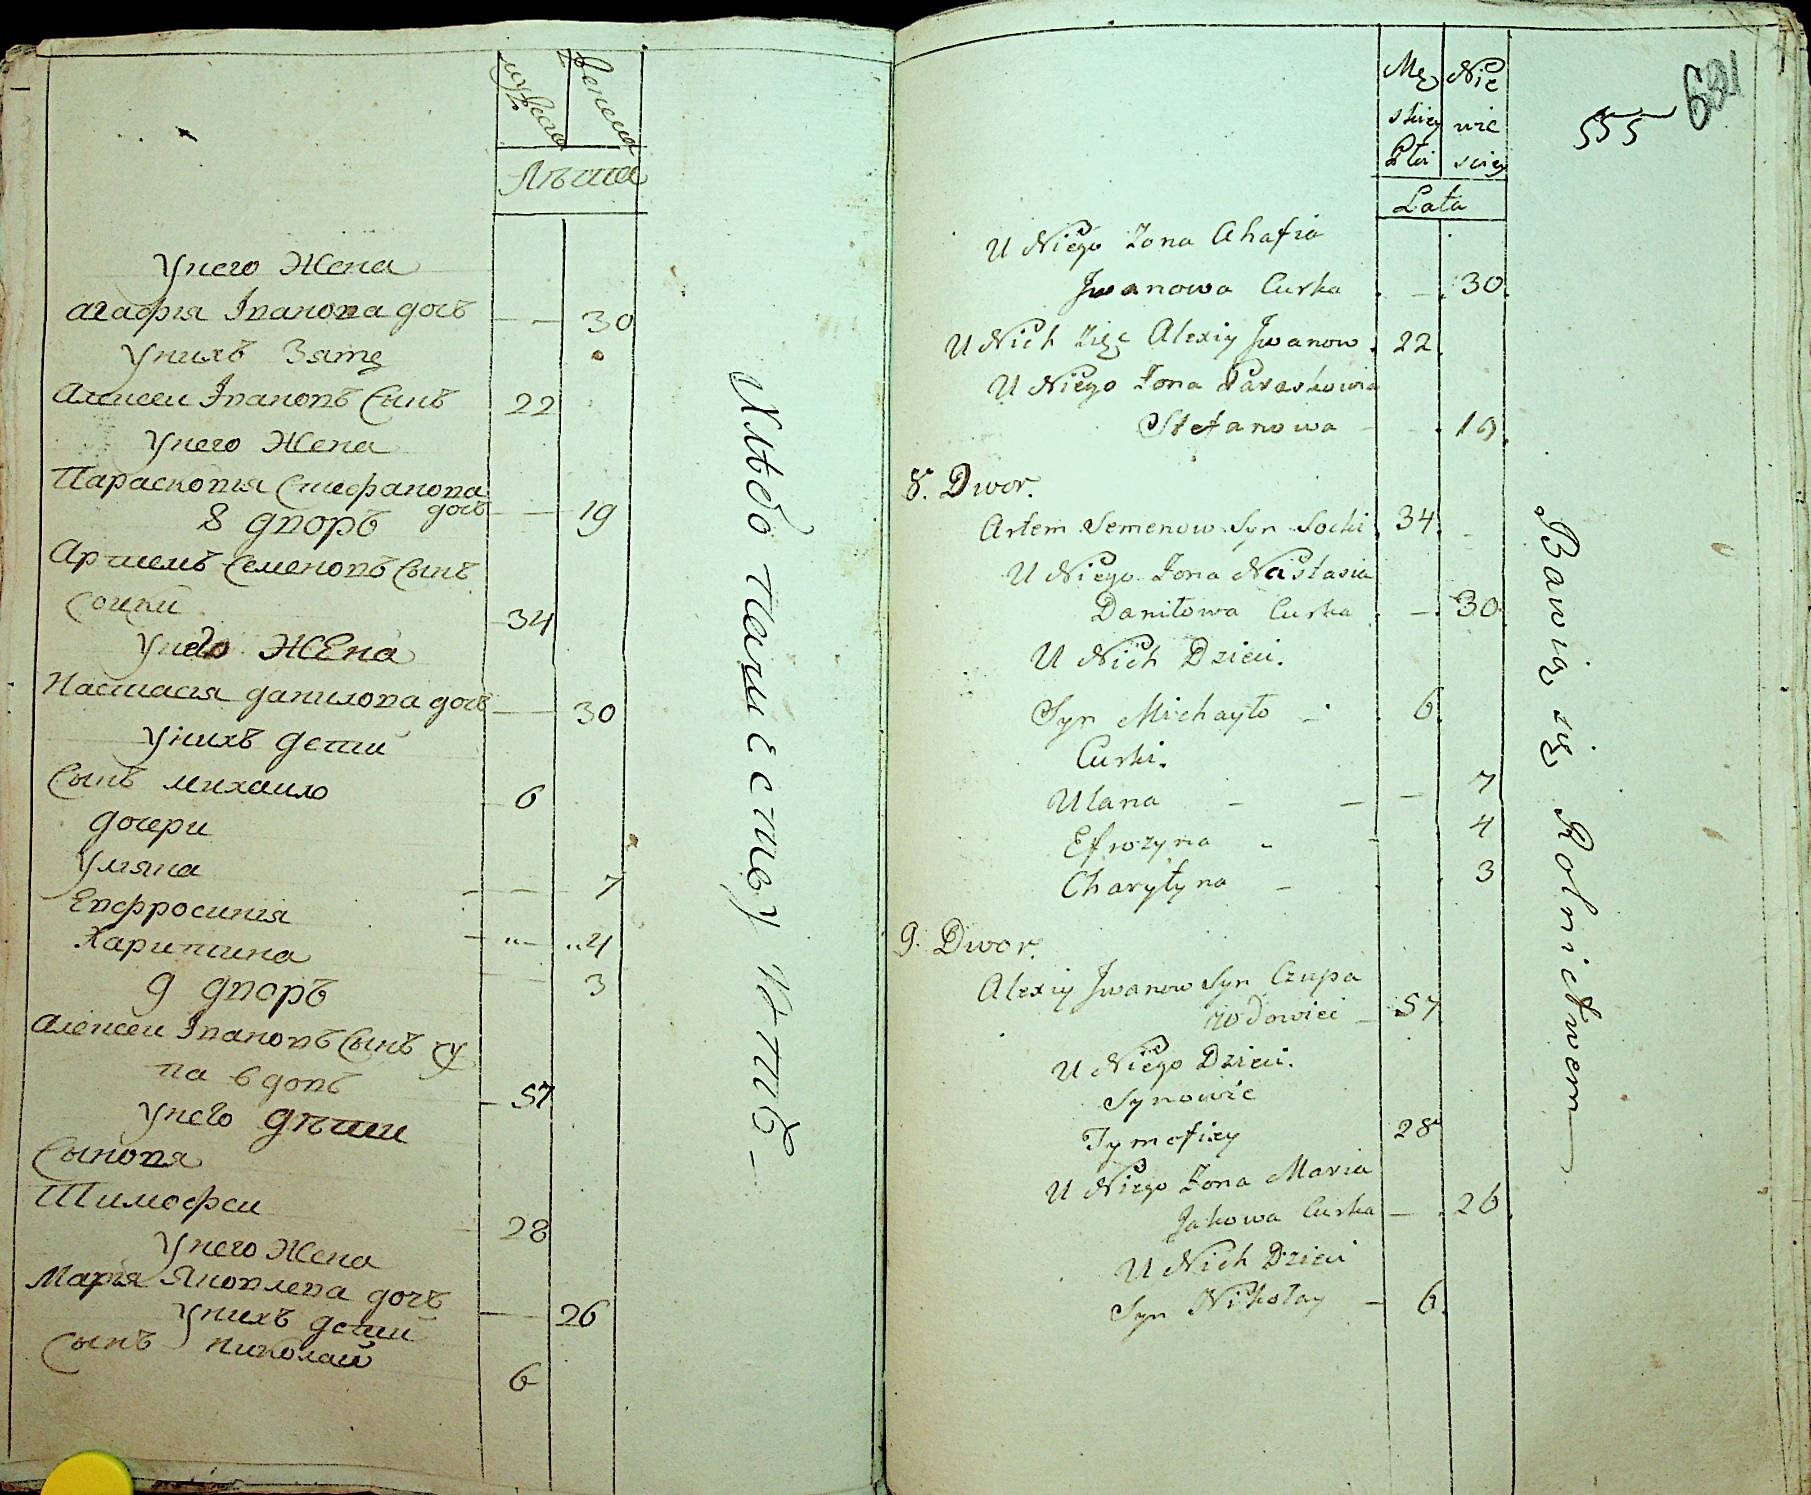 Мужеска
Женска
Лѣта
Унего Жена
агафія Іванова дочь
30
Унихъ Зять
Алексеи Івановъ Сынъ
22
Унего Жена
Параскопія Стефанова
дочь
19
8 дворъ
Артиемъ Семеновъ Сынъ
Сочки
34
Унего Жена
Настасія данилова дочь
30
Унихъ дети
Сынъ михаило
6
дочери
Уляна
7
Евфросинія
4
Харитина
3
9 дворъ
Алексеи Івановъ Сынъ чу
па вдовъ
57
Унего дѣти
Сыновя
Тимофеи
28
Унего Жена
Марія Яковлева дочь
26
Унихъ дети
Сынъ николаи
6
Хлѣбо пашеству ютъ
Męz Nie
skiey wie
Płci sciey
Lata
555
691
U Niego Zona Ahafia
Jwanowa Curka - 30
U Nich Zięc Alexiy Jwanow 22
U Niego Zona Paraskowia
Stefanowa - 19
8. Dwor.
Artem Semenow Syn Socki 34
U Niego Zona Nastasia
Daniłowa Curka - 30
U Nich Dzieci.
Syn Michayło - 6
Curki.
Ulana - - - 7
Efrozyna - - 4
Charytyna - 3
9. Dwor.
Alexiy Jwanow Syn Czupa
Wdowiec - 57
U Niego Dzieci.
Synowie
Tymofiey 28
U Niego Zona Maria
Jakowa Curka - 26
U Nich Dzieci
Syn Nikołay - 6
Bawią się Rolnictwem